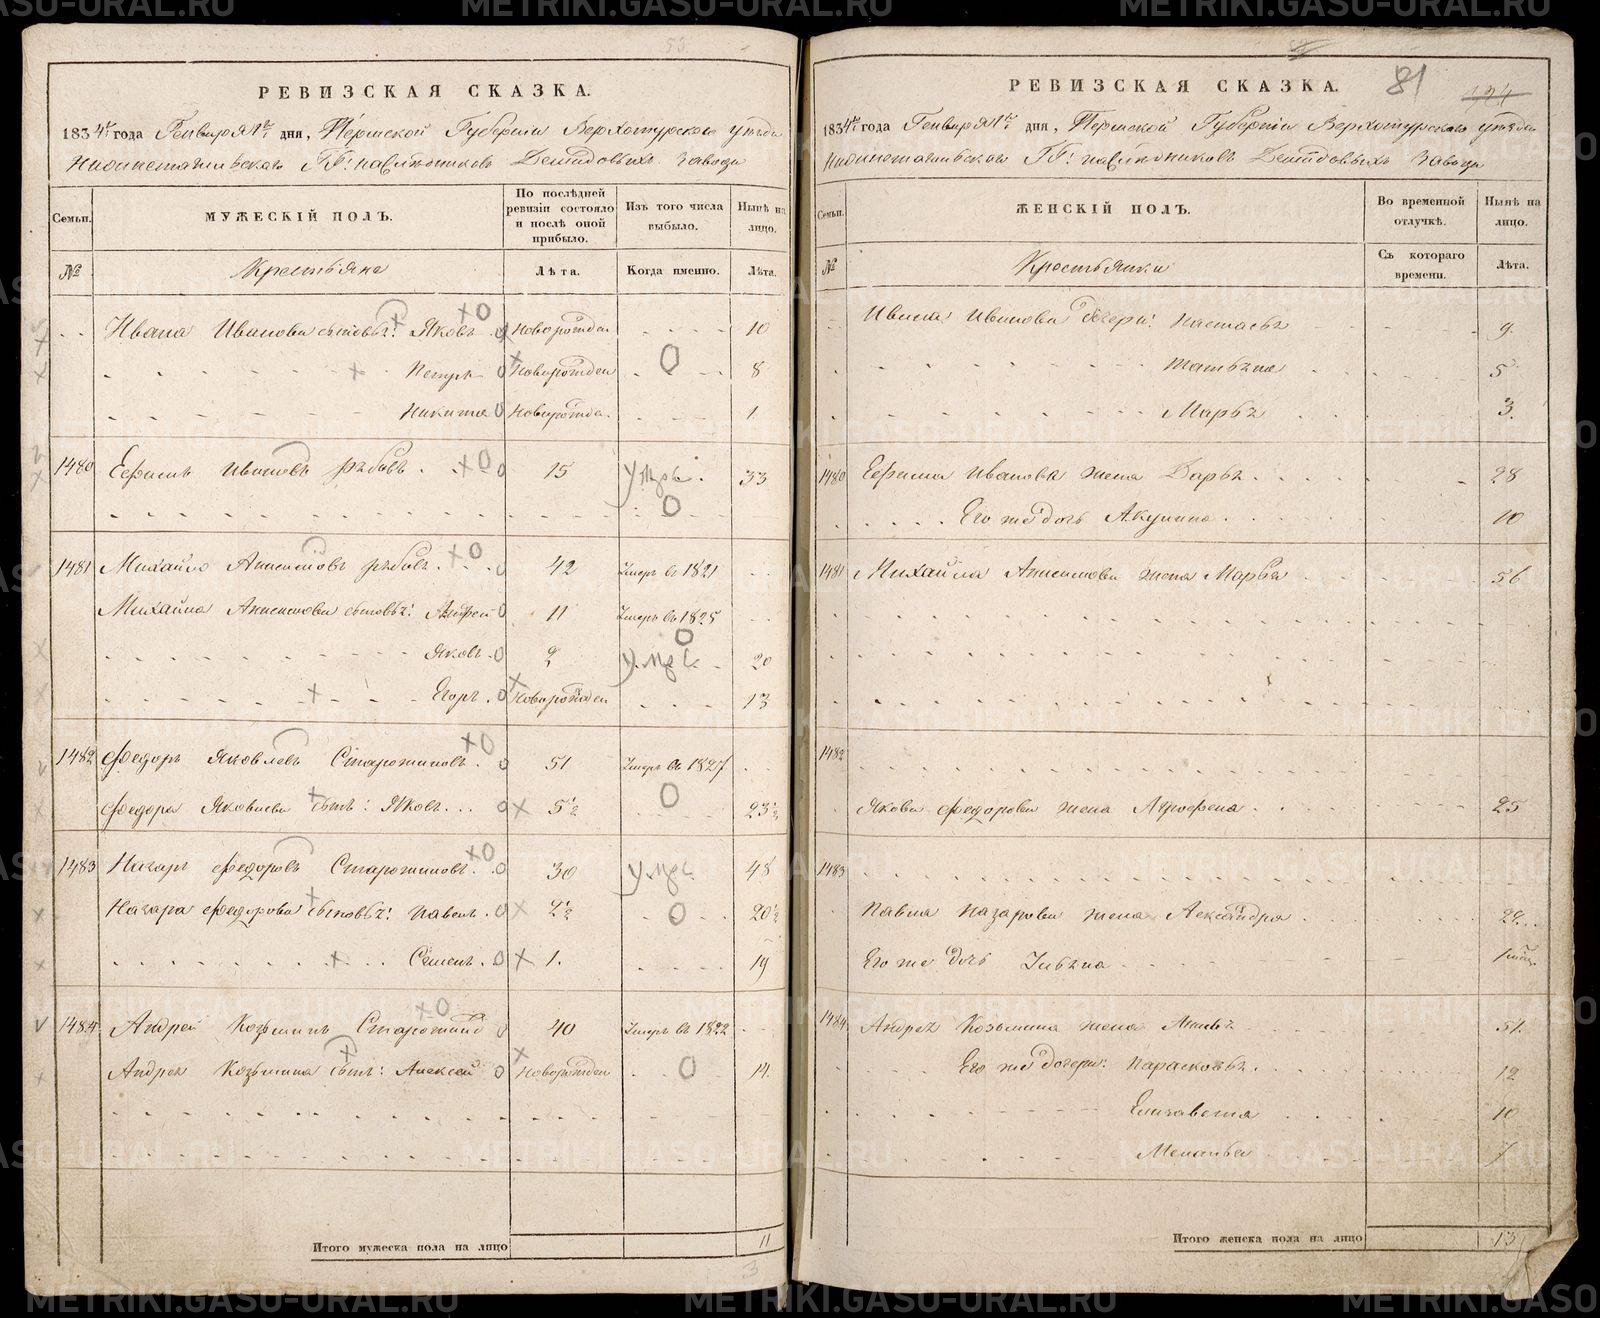 РЕВИЗСКАЯ СКАЗКА.
1834го года Генваря 1го дня, Пермской Губернiи Верхотурскаго уѣзда
Нижнетагильскаго ГГ: наслѣдниковъ Демидовыхъ завода
Семьи. МУЖЕСКIЙ ПОЛЪ. По послѣдней ревизiи состояло и послѣ оной прибыло. Изъ того числа выбыло. Нынѣ на лицо.
№ Крестьяне Лѣта. Когда именно. Лѣта.
Ивана Иванова сыновья: Яковъ новорожден 10
Петръ новорожден 8
Никита новорожд. 1.
1480 Ефимъ Ивановъ 15 умръ 33
1481 Михайло Анисимовъ 42 Умеръ въ 1821
Михайла Анисимова сыновья: Андрей 11 Умеръ въ 1825
Яковъ 2 умръ 20
Егоръ новорожден 13
1482 Федоръ Яковлевъ Старожиловъ 51 Умеръ въ 1827
Федора Яковлева сынъ: Яковъ 5½ 23½
1483 Назаръ Федоровъ Старожиловъ 30 умръ 48
Назара Федорова сыновья: Павелъ 2½ 20½
Семенъ 1. 19
1484 Андрей Козьминъ 40 Умеръ въ 1822
Андрея Козьмина сынъ: Алексей новорожден 14
Итого мужеска пола на лицо 11
3
РЕВИЗСКАЯ СКАЗКА. 81
1834го года Генваря 1го дня, Пермской Губернiи Верхотурскаго уѣзда
Нижнетагильскаго ГГ: наслѣдниковъ Демидовыхъ завода
Семьи. ЖЕНСКIЙ ПОЛЪ. Во временной отлучкѣ. Нынѣ на лицо.
№ Крестьянки Съ котораго времени. Лѣта.
Ивана Иванова дочери: Настасья 9
Татьяна 5
Марья 3.
1480 Ефима Иванова жена Дарья 28
Его же дочь Акулина 10
1481 Михайла Анисимова жена Марья 56
1482
Якова Федорова жена 25
1483
Павла Назарова жена Александра
Его же дочь
1484 Андрея Козьмина жена Анна 51
Его же дочери: Парасковья 12
Елизавета 10
Меланья 7
Итого женска пола на лицо 13
METRIKI.GASO-URAL.RU